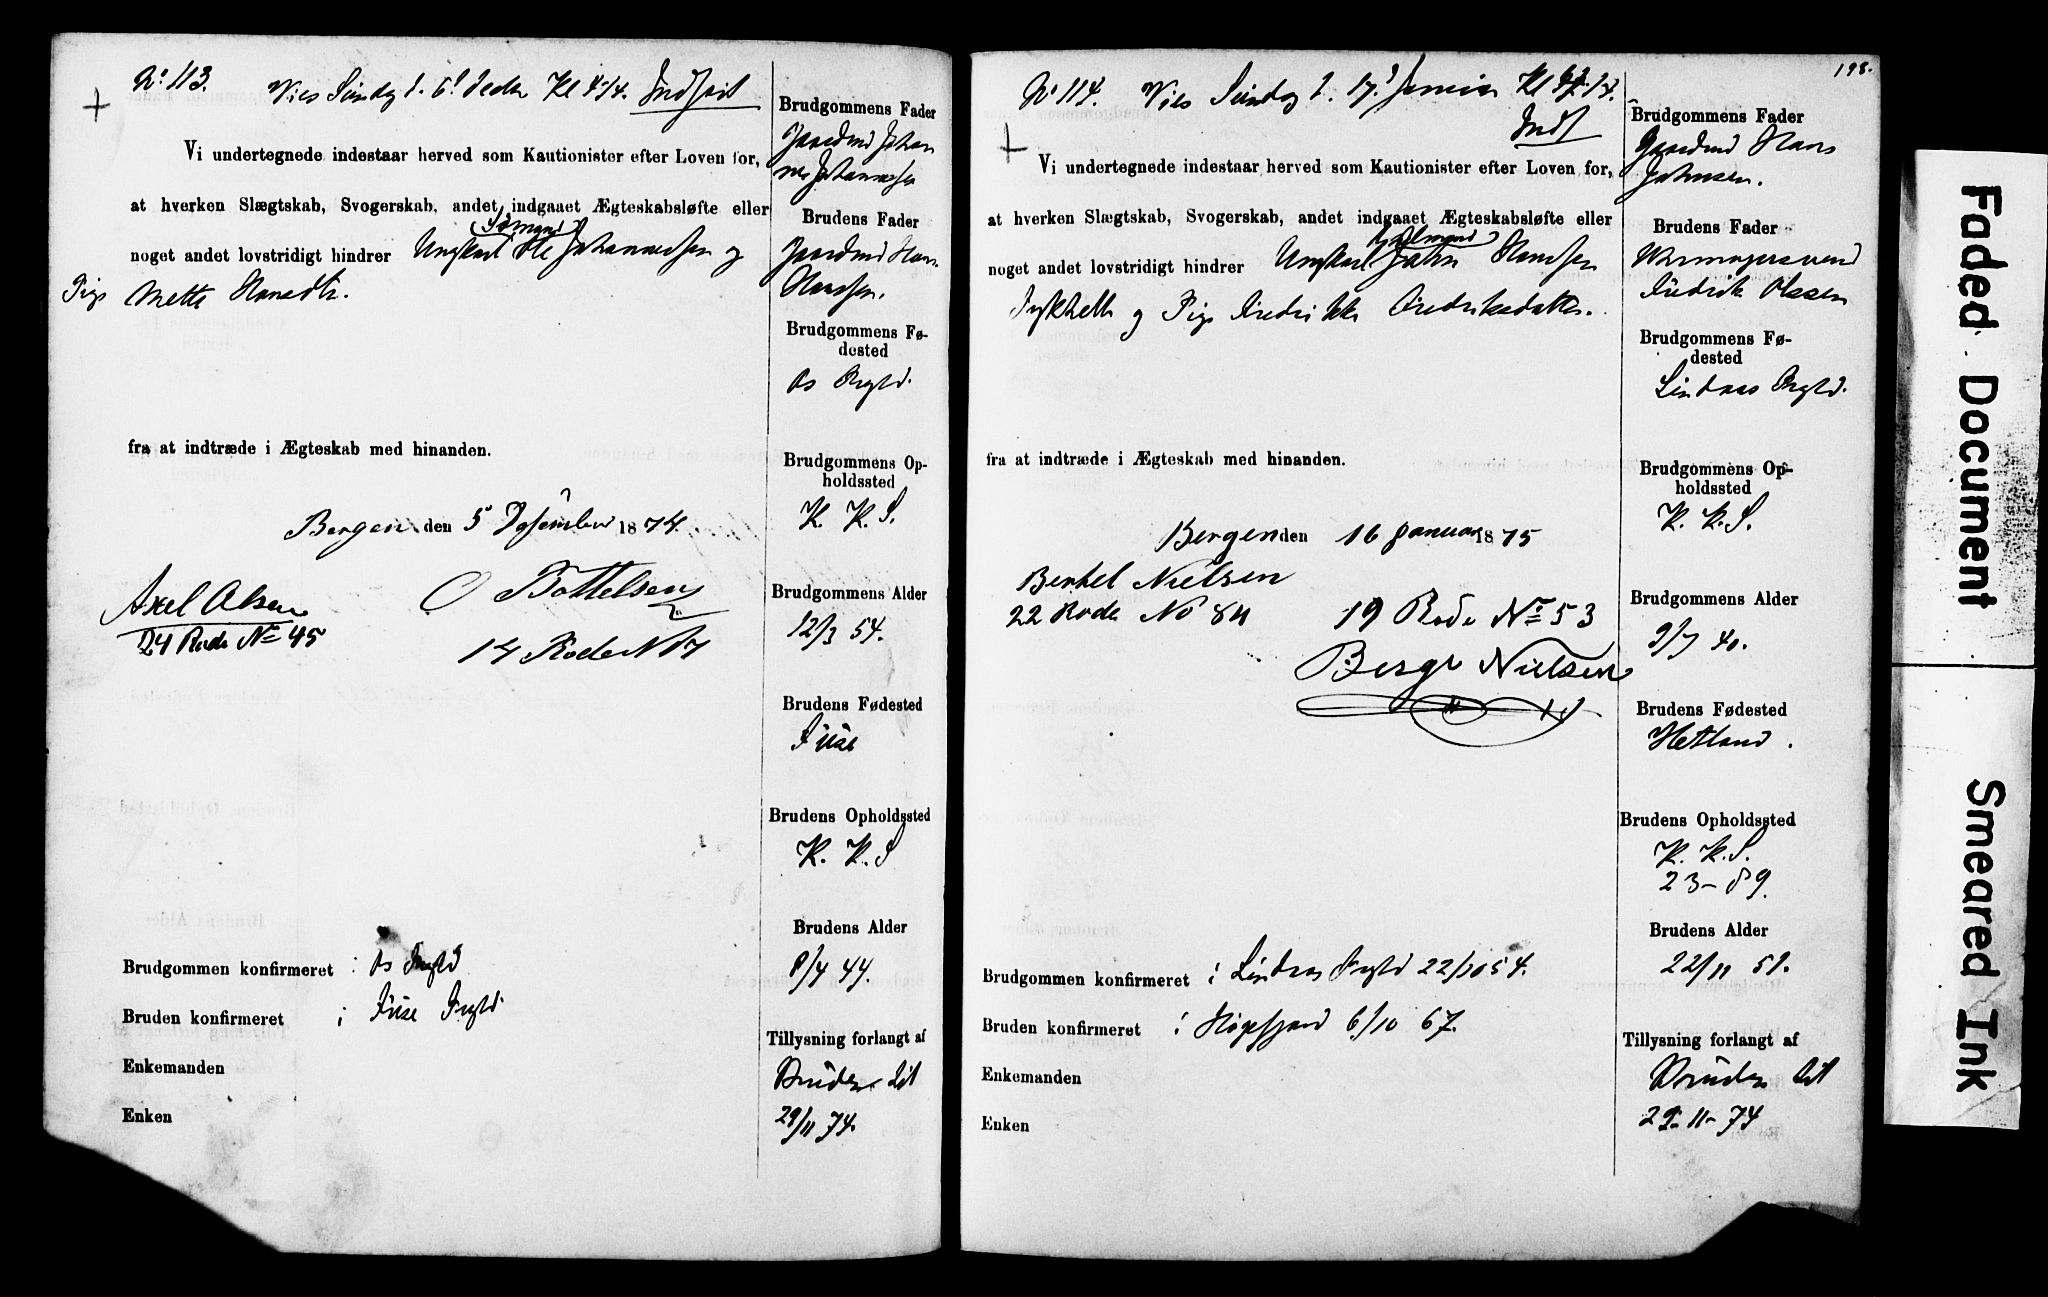 No 113. Vies Søndag d. 6te Decbr Kl 4 1/4. Indført
Vi undertegnede indestaar herved som Kautionister efter Loven for,
at hverken Slægtskab, Svogerskab, andet indgaaet Ægteskabsløfte eller
Sømand
noget andet lovstridigt hindrer Ungkarl Ole Johannessen og
Pige Mette Hansdtr.
fra at indtræde i Ægteskab med hinanden.
Bergen den 5 Desember 1874.
Axel Olsen
24 Rode No 45
O Bottelsen
14 Rode N 17
Brudgommen konfirmeret i Os Prgld
Bruden konfirmeret i Fuse Prgld
Enkemanden
Enken
Brudgommens Fader
Gaardmd Johan
nes Johannessen
Brudens Fader
Gaardmd Hans
Hansen.
Brudgommens Fø-
dested
Os Prgld.
Brudgommens Op-
holdssted
K. K. S.
Brudgommens Alder
12/3 54.
Brudens Fødested
Fuse
Brudens Opholdssted
K. K. S
Brudens Alder
8/4 44.
Tillysning forlangt af
Bruden
29/11 74.
198.
No 114. Vies Søndag d. 17de Januar Kl
Indf
Vi undertegnede indestaar herved som Kautionister efter Loven for,
at hverken Slægtskab, Svogerskab, andet indgaaet Ægteskabsløfte eller
noget andet lovstridigt hindrer Ungkarl John Hansen
og Pige Fredrikke Fredriksdatter.
fra at indtræde i Ægteskab med hinanden.
Bergen den 16 Januar 1875
Berthel Nielsen
22 Rode No 84
19 Rode No 53
Berge Nielsen
Brudgommen konfirmeret i Lindaas Prgld 22/10 54.
Bruden konfirmeret i Høgsfjord 6/10 67.
Enkemanden
Enken
Brudgommens Fader
Gaardmd Hans
Johnsen.
Brudens Fader
Fredrik Olssen
Brudgommens Fø-
dested
Lindaas Prgld.
Brudgommens Op-
holdssted
K. K. S.
Brudgommens Alder
9/7 40.
Brudens Fødested
Hetland.
Brudens Opholdssted
K. K. S.
23-89.
Brudens Alder
22/11 51.
Tillysning forlangt af
Bruden
29-11-74
Faded Document
Smeared Ink